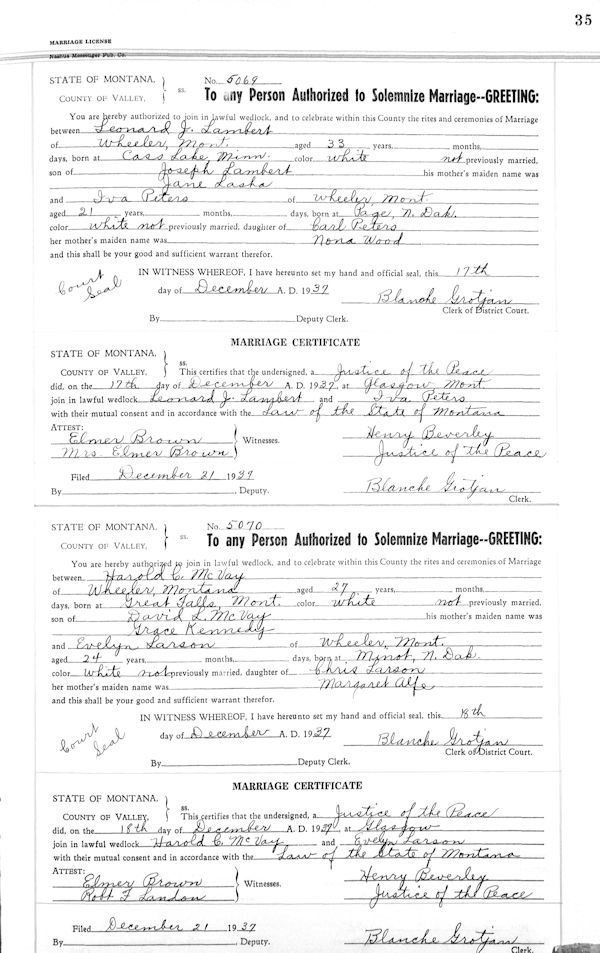 35
MARRIAGE LICENSE
Nashua Messenger Pub. Co.
STATE OF MONTANA, No. 5069
COUNTY OF VALLEY. ss. To any Person Authorized to Solemnize Marriage--GREETING:
You are hereby authorized to join in lawful wedlock, and to celebrate within this County the rites and ceremonies of Marriage
between Leonard J. Lambert
of Wheeler, Mont. aged 33 years months
days, born at Cass Lake, Minn. color white not previously married,
son of Joseph Lambert his mother's maiden name was
Jane Lasha
and Iva Peters of Wheeler, Mont.
aged 21 years, months days, born at Page, N. Dak.
color white not previously married, daughter of Carl Peters
her mother's maiden name was Nona Wood
and this shall be your good and sufficient warrant therefor.
IN WITNESS WHEREOF, I have hereunto set my hand and official seal, this 17th
Court Seal day of December A. D. 1937 Blanche Grotjan
Clerk of District Court.
By Deputy Clerk.
MARRIAGE CERTIFICATE
STATE OF MONTANA.
ss.
COUNTY OF VALLEY. This certifies that the undersigned, a Justice of the Peace
did, on the 17th day of December A. D. 1937, at Glasgow, Mont
join in lawful wedlock Leonard J. Lambert and Iva Peters
with their mutual consent and in accordance with the Law of the State of Montana
ATTEST: Henry Beverley
Elmer Brown
Mrs. Elmer Brown Witnesses. Justice of the Peace
Filed December 21 1937 Blanche Grotjan
By , Deputy. Clerk.
STATE OF MONTANA, No. 5070
COUNTY OF VALLEY, ss. To any Person Authorized to Solemnize Marriage--GREETING:
You are hereby authorized to join in lawful wedlock, and to celebrate within this County the rites and ceremonies of Marriage
between Harold C. McVay
of Wheeler, Montana aged 27 years, months
days, born at Great Falls, Mont. color white not previously married,
son of David L. McVay his mother's maiden name was
Grace Kennedy
and Evelyn Larson of Wheeler, Mont.
aged 24 years, months days, born at Minot, N. Dak.
color white not previously married, daughter of Chris Larson
her mother's maiden name was Margaret Alfe
and this shall be your good and sufficient warrant therefor.
IN WITNESS WHEREOF, I have hereunto set my hand and official seal, this 18th
Court Seal day of December A. D. 1937 Blanche Grotjan
Clerk of District Court.
By Deputy Clerk.
MARRIAGE CERTIFICATE
STATE OF MONTANA.
ss.
COUNTY OF VALLEY. This certifies that the undersigned, a Justice of the Peace
did, on the 18th day of December A. D. 1937, at Glasgow
join in lawful wedlock Harold C. McVay and Evelyn Larson
with their mutual consent and in accordance with the Law of the State of Montana
ATTEST: Henry Beverley
Elmer Brown
Robt F Landon Witnesses. Justice of the Peace
Filed December 21 1937
By , Deputy. Blanche Grotjan
Clerk.